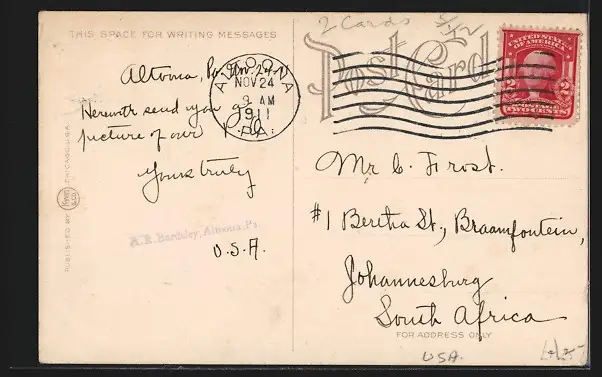 2 Cards
THIS SPACE FOR WRITING MESSAGES
Post Card
UNITED STATES OF AMERICA
POSTAGE
2 2
TWO CENTS
ALTOONA
NOV 24
9 AM
1911
PA.
Altoona, Pa. Nov. 24-11
Herewith send you
picture of our P.O.
Yours truly
A. R. Barthley, Altoona, Pa
U.S.A.
Mr C. Frost.
#1 Beretha St., Braamfontein,
Johannesburg
South Africa
FOR ADDRESS ONLY
USA.
PUBLISHED BY
CHICAGO, U.S.A.